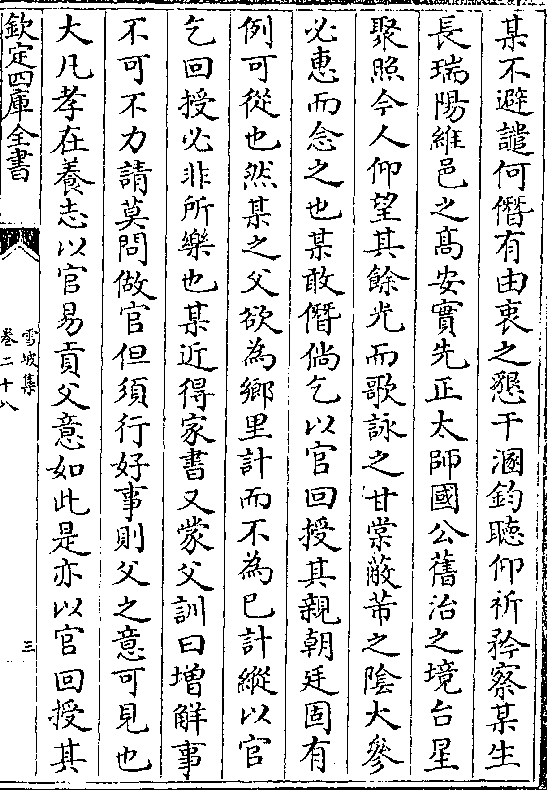 某不避譴何僭有由衷之懇干溷鈞聽仰祈矜察某生
長瑞陽維邑之髙安實先正太師國公舊治之境台星
聚照今人仰望其餘光而歌詠之甘棠蔽芾之陰大參
必惠而念之也某敢僭倘乞以官回授其親朝廷固有
例可從也然某之父欲為鄉里計而不為已計縱以官
乞回授必非所樂也某近得家書又蒙父訓曰增解事
不可不力請莫問做官但須行好事則父之意可見也
大凡孝在養志以官易貢父意如此是亦以官回授其
欽定四庫全書
雪坡集
卷二十八
三